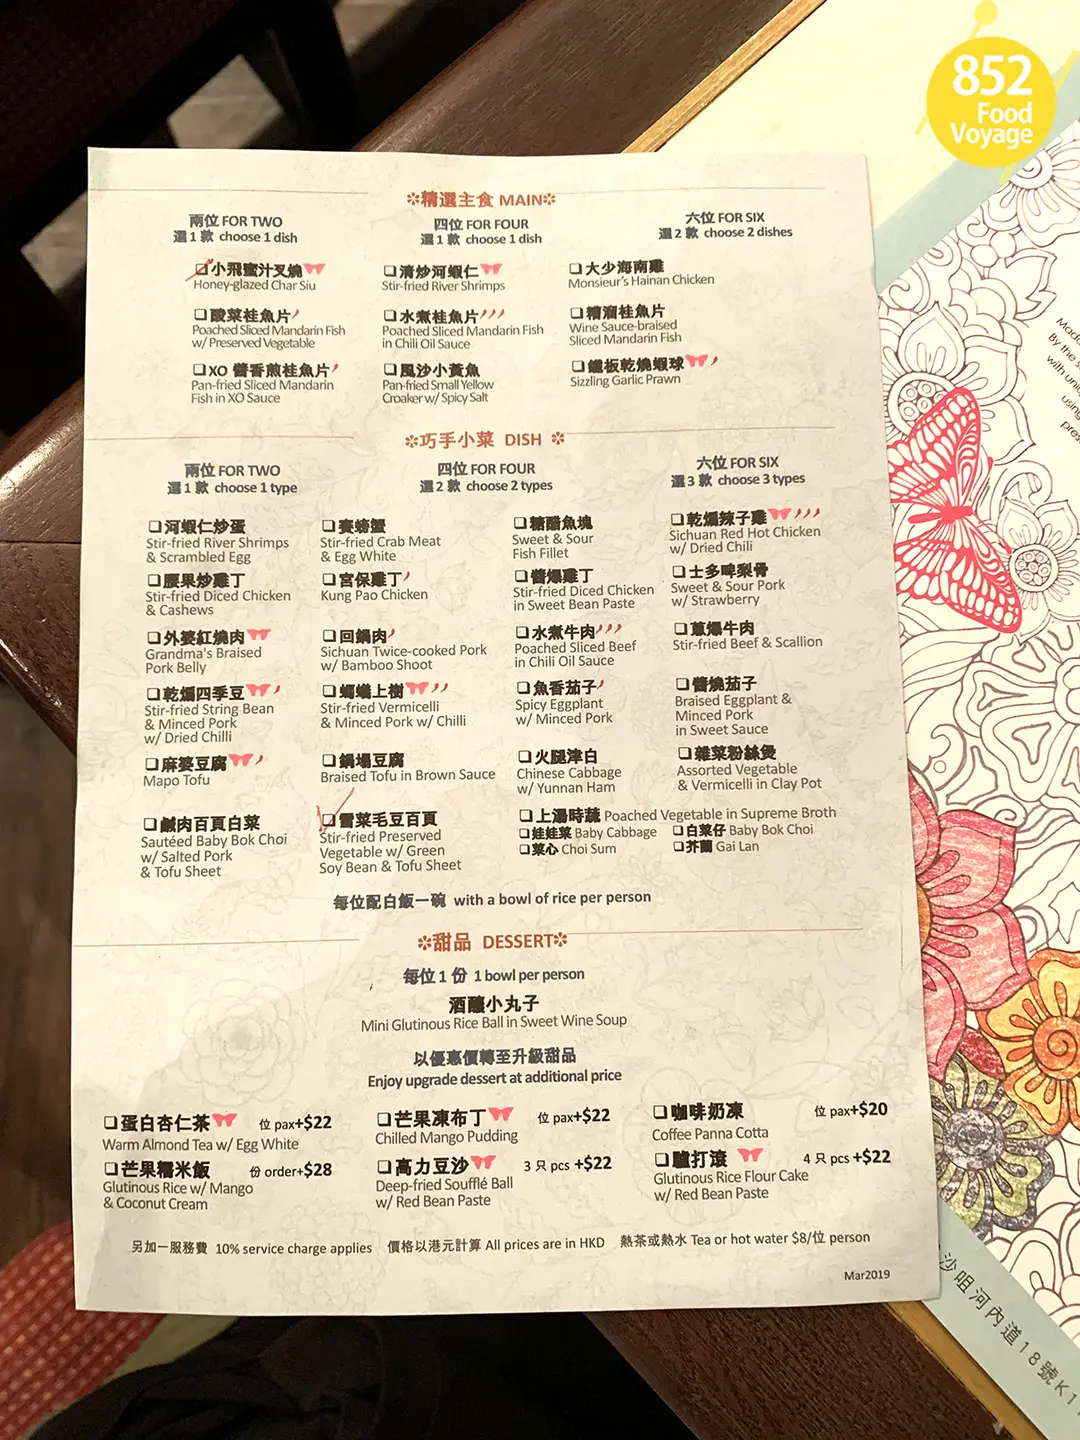 852
Food
Voyage
✻精選主食 MAIN✻
兩位 FOR TWO
選 1 款 choose 1 dish
四位 FOR FOUR
選 1 款 choose 1 dish
六位 FOR SIX
選 2 款 choose 2 dishes
❑小飛蜜汁叉燒
Honey-glazed Char Siu
❑清炒河蝦仁
Stir-fried River Shrimps
❑大少海南雞
Monsieur's Hainan Chicken
❑酸菜桂魚片
Poached Sliced Mandarin Fish
w/ Preserved Vegetable
❑水煮桂魚片
Poached Sliced Mandarin Fish
in Chili Oil Sauce
❑糟溜桂魚片
Wine Sauce-braised
Sliced Mandarin Fish
❑XO 醬香煎桂魚片
Pan-fried Sliced Mandarin
Fish in XO Sauce
❑風沙小黃魚
Pan-fried Small Yellow
Croaker w/ Spicy Salt
❑鐵板乾燒蝦球
Sizzling Garlic Prawn
✻巧手小菜 DISH ✻
兩位 FOR TWO
選 1 款 choose 1 type
四位 FOR FOUR
選 2 款 choose 2 types
六位 FOR SIX
選 3 款 choose 3 types
❑河蝦仁炒蛋
Stir-fried River Shrimps
& Scrambled Egg
❑賽螃蟹
Stir-fried Crab Meat
& Egg White
❑糖醋魚塊
Sweet & Sour
Fish Fillet
❑乾煸辣子雞
Sichuan Red Hot Chicken
w/ Dried Chili
❑腰果炒雞丁
Stir-fried Diced Chicken
& Cashews
❑宮保雞丁
Kung Pao Chicken
❑醬爆雞丁
Stir-fried Diced Chicken
in Sweet Bean Paste
❑士多啤梨骨
Sweet & Sour Pork
w/ Strawberry
❑外婆紅燒肉
Grandma's Braised
Pork Belly
❑回鍋肉
Sichuan Twice-cooked Pork
w/ Bamboo Shoot
❑水煮牛肉
Poached Sliced Beef
in Chili Oil Sauce
❑蔥爆牛肉
Stir-fried Beef & Scallion
❑乾煸四季豆
Stir-fried String Bean
& Minced Pork
w/ Dried Chilli
❑螞蟻上樹
Stir-fried Vermicelli
& Minced Pork w/ Chilli
❑魚香茄子
Spicy Eggplant
w/ Minced Pork
❑醬燒茄子
Braised Eggplant &
Minced Pork
in Sweet Sauce
❑麻婆豆腐
Mapo Tofu
❑鍋塌豆腐
Braised Tofu in Brown Sauce
❑火腿津白
Chinese Cabbage
w/ Yunnan Ham
❑雜菜粉絲煲
Assorted Vegetable
& Vermicelli in Clay Pot
❑鹹肉百頁白菜
Sautéed Baby Bok Choi
w/ Salted Pork
& Tofu Sheet
❑雪菜毛豆百頁
Stir-fried Preserved
Vegetable w/ Green
Soy Bean & Tofu Sheet
❑上湯時蔬 Poached Vegetable in Supreme Broth
❑娃娃菜 Baby Cabbage ❑白菜仔 Baby Bok Choi
❑菜心 Choi Sum ❑芥蘭 Gai Lan
每位配白飯一碗 with a bowl of rice per person
✻甜品 DESSERT✻
每位 1 份 1 bowl per person
酒釀小丸子
Mini Glutinous Rice Ball in Sweet Wine Soup
以優惠價轉至升級甜品
Enjoy upgrade dessert at additional price
❑蛋白杏仁茶 位 pax+$22
Warm Almond Tea w/ Egg White
❑芒果凍布丁 位 pax+$22
Chilled Mango Pudding
❑咖啡奶凍 位 pax+$20
Coffee Panna Cotta
❑芒果糯米飯 份 order+$28
Glutinous Rice w/ Mango
& Coconut Cream
❑高力豆沙 3 只 pcs +$22
Deep-fried Soufflé Ball
w/ Red Bean Paste
❑驢打滾 4 只 pcs +$22
Glutinous Rice Flour Cake
w/ Red Bean Paste
另加一服務費 10% service charge applies 價格以港元計算 All prices are in HKD 熱茶或熱水 Tea or hot water $8/位 person
Mar2019
By the s
with uni
using
pres
沙咀河內道18號K1